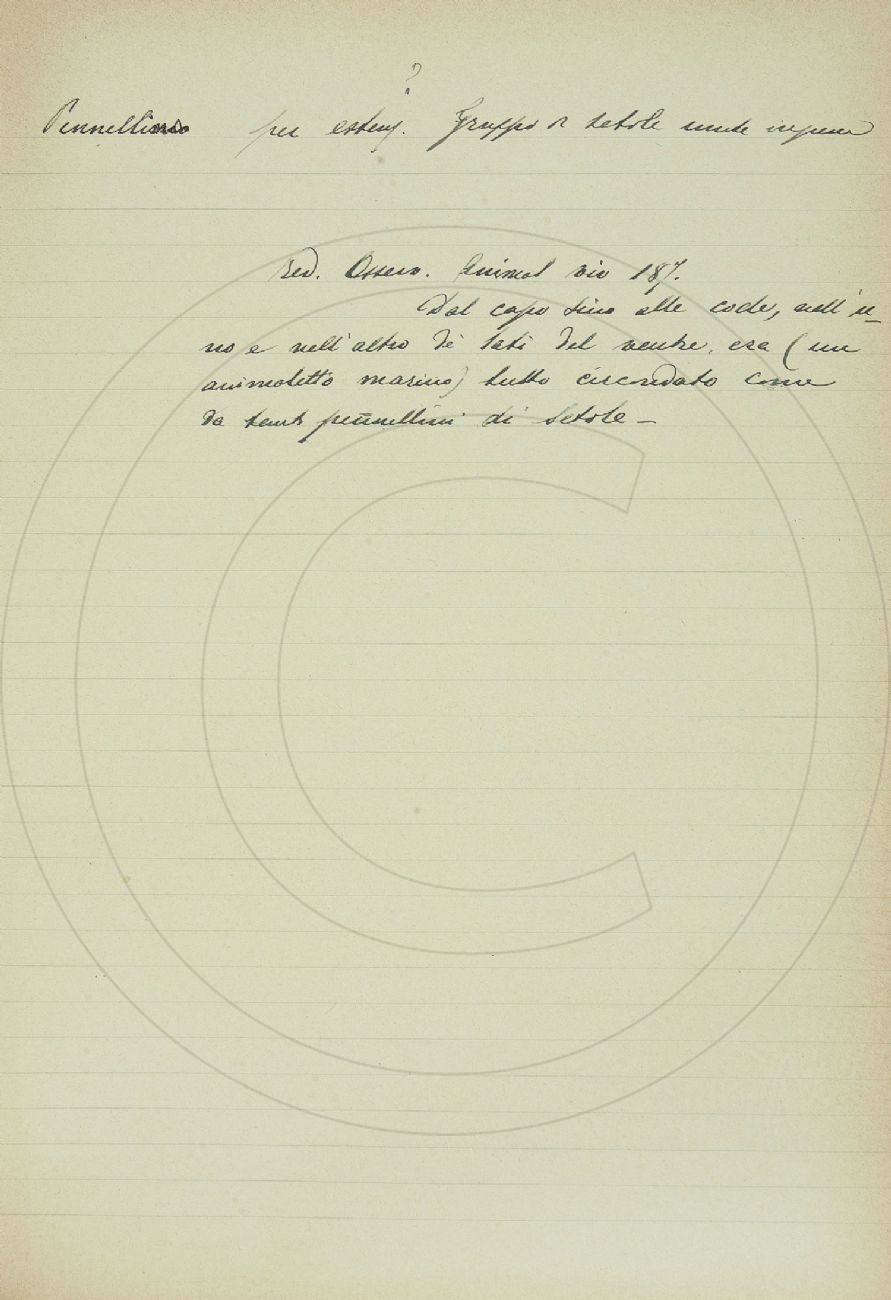 ?
Pennellino per estens. Gruppo di setole unite insieme
Red. Osserv. Animal viv 187.
Dal capo sino alle code, nell'u-
no e nell'altro de' lati del ventre, era (un
animaletto marino) tutto circondato come
da tanti pennellini di setole —